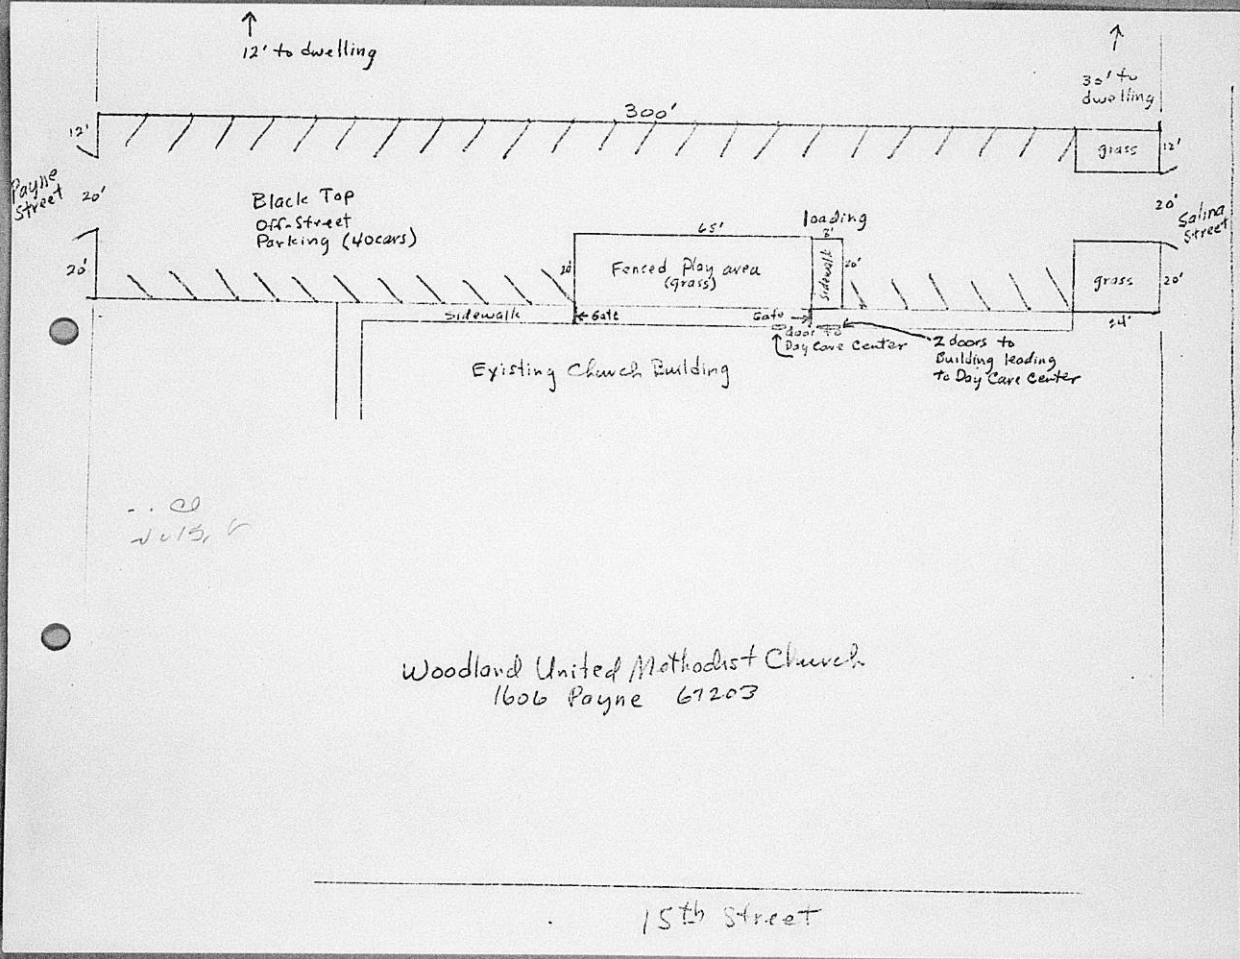 12' to dwelling
30' to
dwelling
300'
12'
grass
12'
Payne
Street
20'
20'
Salina
Street
Black Top
Off-Street
Parking (40 cars)
loading
65'
8'
20'
20'
Fenced Play area
(grass)
20'
Sidewalk
20'
grass
20'
24'
Sidewalk
Gate
Gate
door to
Day Care Center
2 doors to
Building leading
to Day Care Center
Existing Church Building
Woodland United Methodist Church
1606 Payne 67203
15th Street